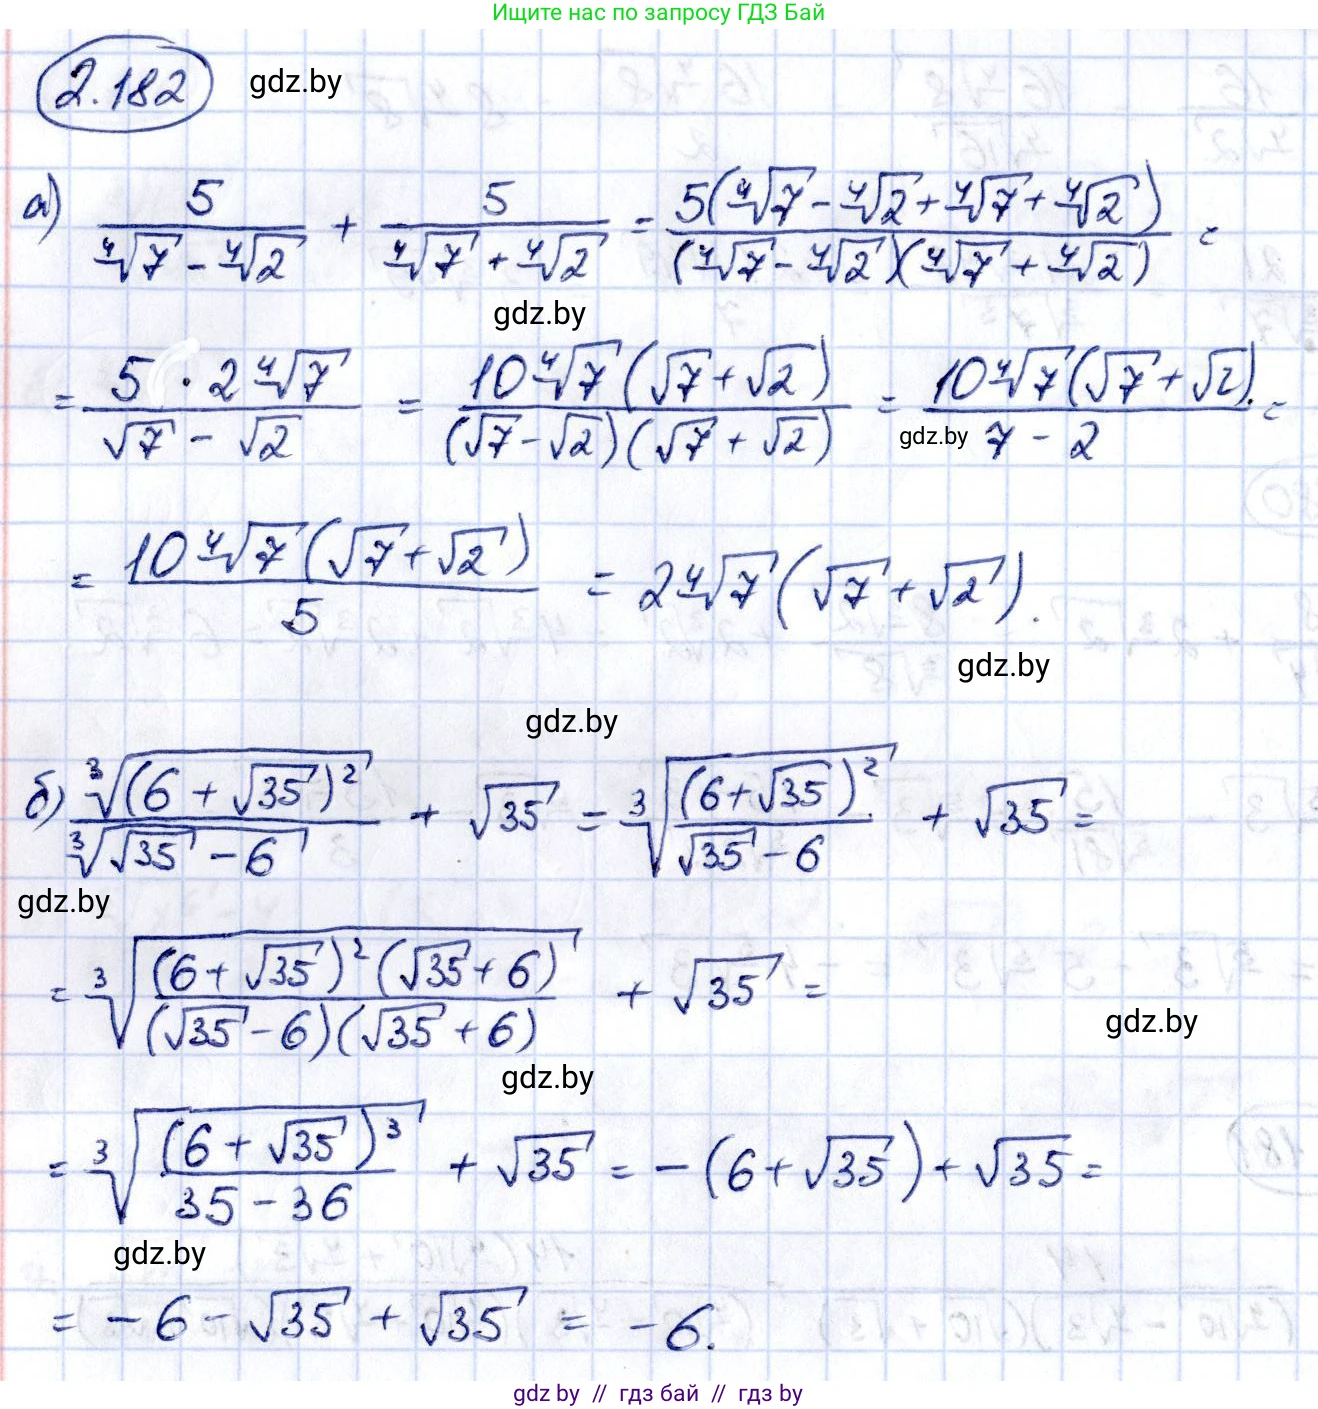 Ищите нас по запросу ГДЗ Бай
2.182 gdz.by
а) 5/(⁴√7 - ⁴√2) + 5/(⁴√7 + ⁴√2) = 5(⁴√7 - ⁴√2 + ⁴√7 + ⁴√2)/((⁴√7 - ⁴√2)(⁴√7 + ⁴√2)) =
gdz.by
= 5 · 2⁴√7/(√7 - √2) = 10⁴√7(√7 + √2)/((√7 - √2)(√7 + √2)) = 10⁴√7(√7 + √2)/(7 - 2) =
gdz.by
= 10⁴√7(√7 + √2)/5 = 2⁴√7(√7 + √2).
gdz.by
gdz.by
б) ³√((6 + √35)²)/³√(√35 - 6) + √35 = ³√((6 + √35)²/(√35 - 6)) + √35 =
gdz.by
= ³√((6 + √35)²(√35 + 6)/((√35 - 6)(√35 + 6))) + √35 =
gdz.by
gdz.by
= ³√((6 + √35)³/(35 - 36)) + √35 = -(6 + √35) + √35 =
gdz.by
= -6 - √35 + √35 = -6.
gdz.by // гдз бай // gdz.by